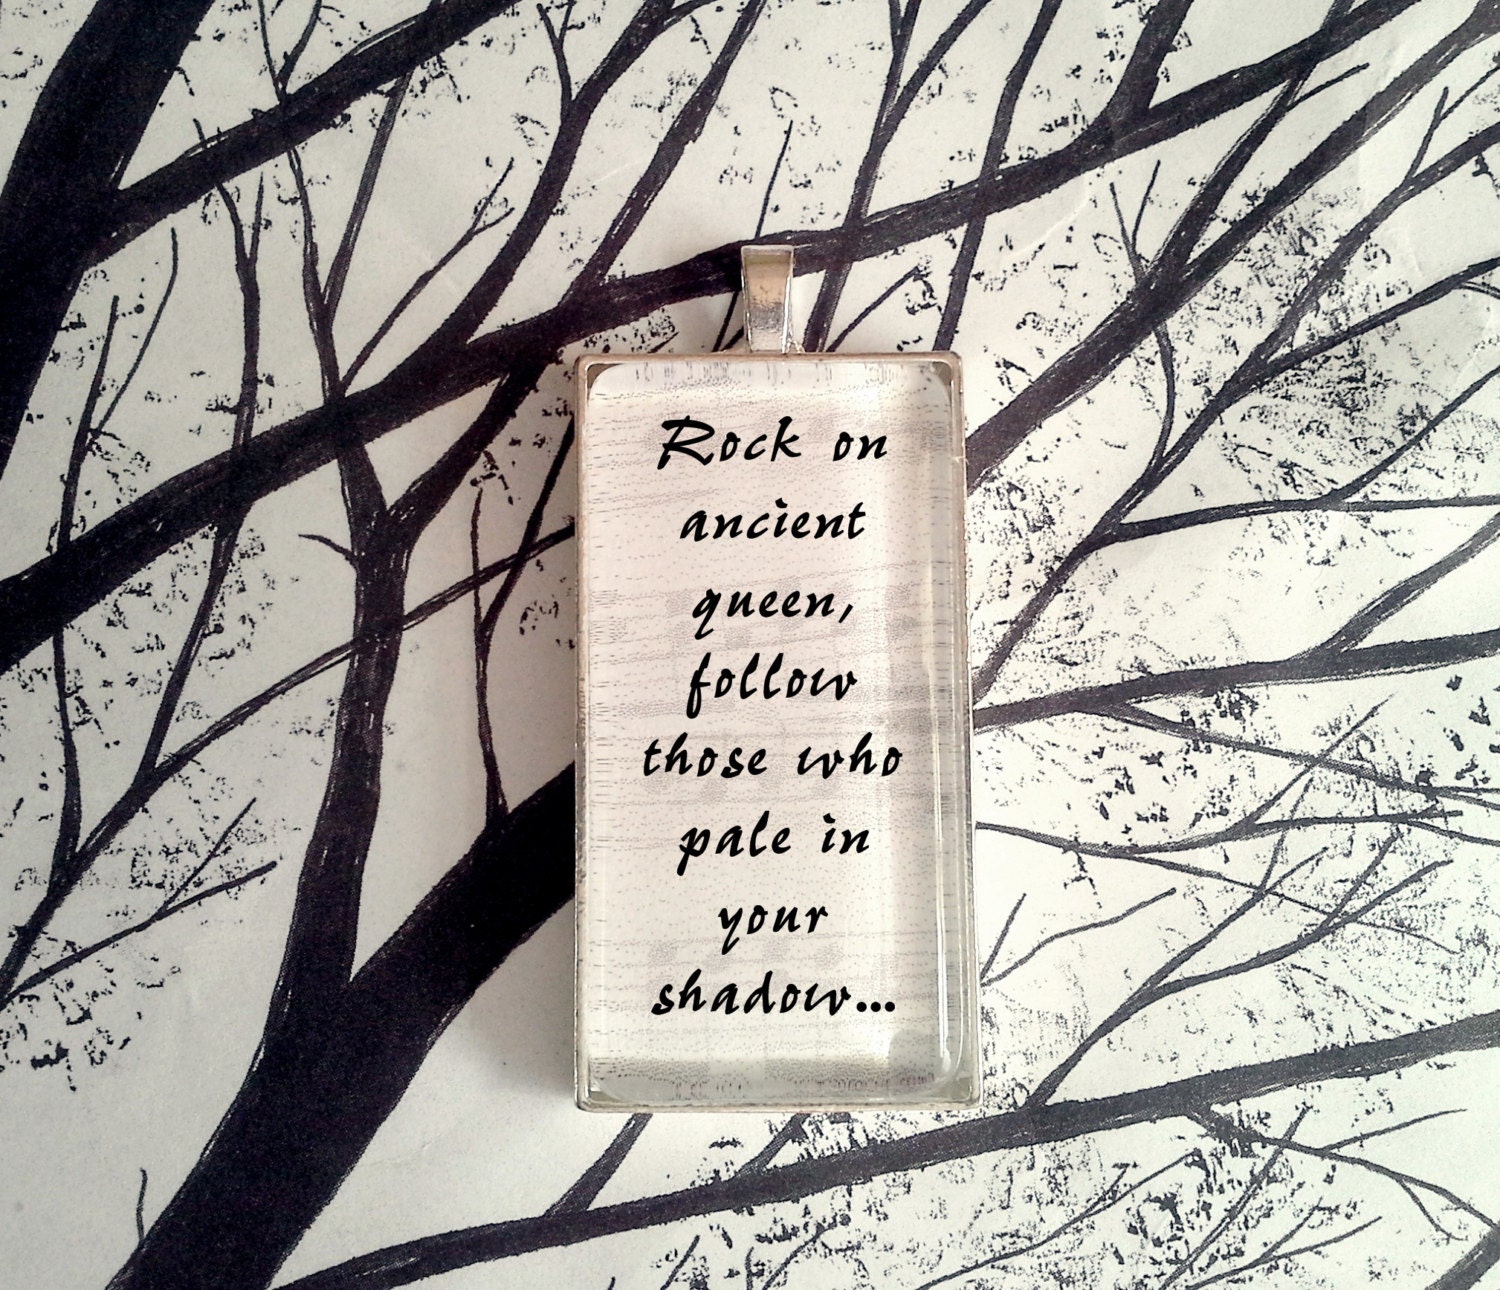 Rock on
ancient
queen,
follow
those who
pale in
your
shadow...